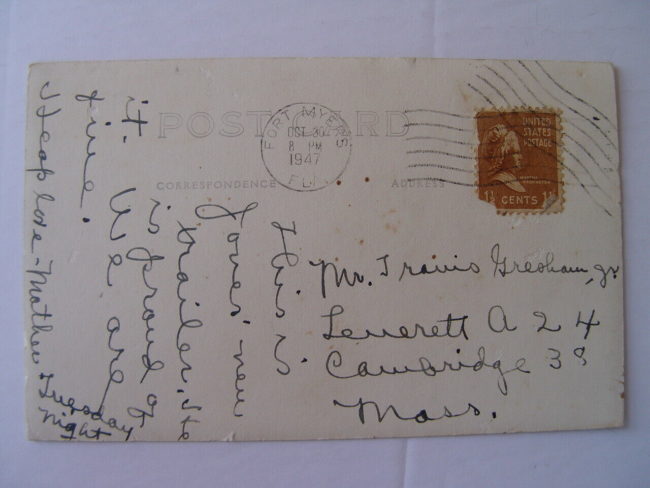 POST CARD
CORRESPONDENCE
ADDRESS
FORT MYERS
OCT 30
8 PM
1947
FLA.
UNITED
STATES
POSTAGE
MARTHA
WASHINGTON
1½ CENTS 1½
This is
Joves' new
trailer. He
is proud of
it. We are
fine.
Heap love - Mother
Tuesday
night
Mr. Travis Gresham, Jr.
Leverett A 24
Cambridge 38
Mass.